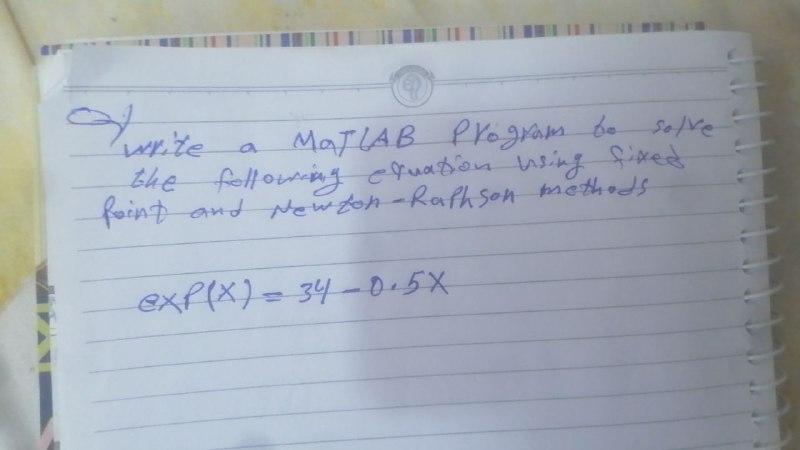 Q/
write a MaTLAB Program to solve
the following equation using fixed
Point and Newton-Raphson methods
exp(x) = 34 - 0.5x